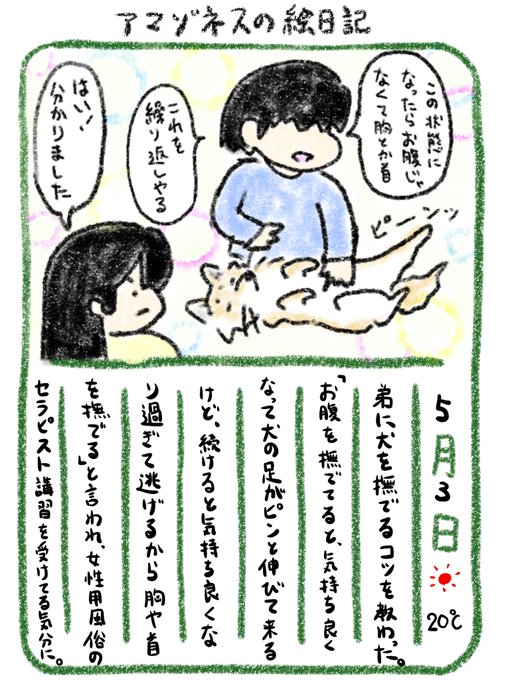 アマゾネスの絵日記
この状態に
なったらお腹じゃ
なくて胸とか首
これを
繰り返しやる
はい！
分かりました
ピーンッ
5月3日
20℃
弟に犬を撫でるコツを教わった。
「お腹を撫でてると、気持ち良く
なって犬の足がピンと伸びて来る
けど、続けると気持ち良くな
り過ぎて逃げるから胸や首
を撫でる」と言われ、女性用風俗の
セラピスト講習を受けてる気分に。